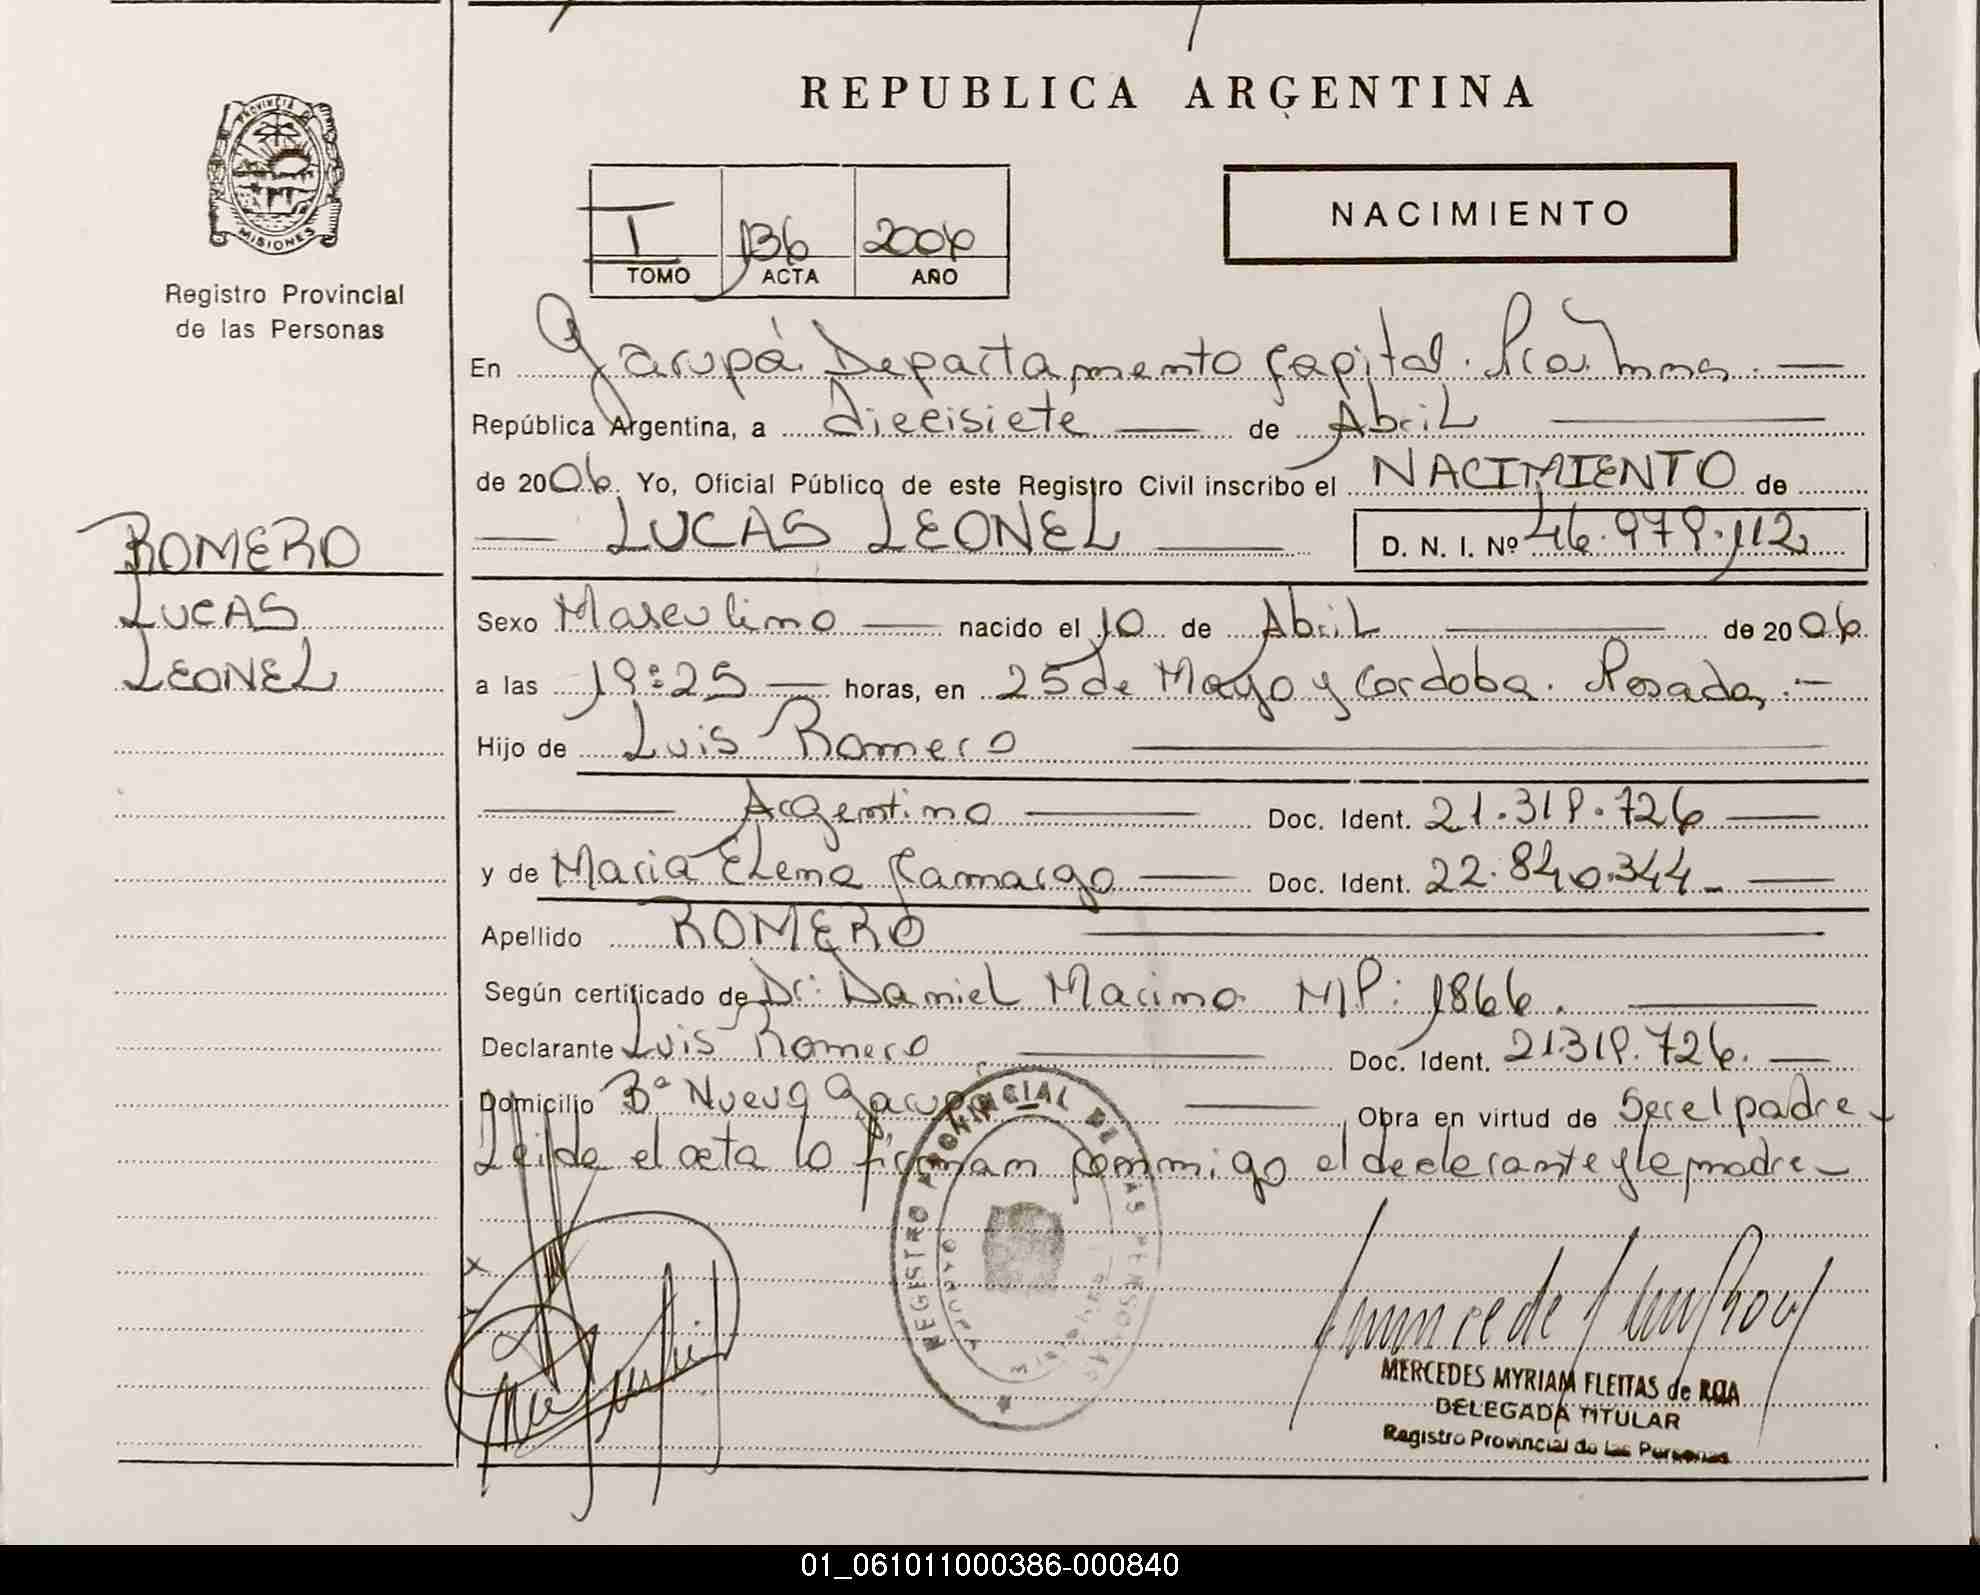 REPUBLICA ARGENTINA
PROVINCIA DE
MISIONES
Registro Provincial
de las Personas
I 136 2006
TOMO ACTA AÑO
NACIMIENTO
En Garupá Departamento Capital. Pcia. Mnes.
República Argentina, a diecisiete de Abril
de 2006. Yo, Oficial Público de este Registro Civil inscribo el NACIMIENTO de
LUCAS LEONEL D. N. I. Nº 46.979.112
ROMERO
LUCAS
LEONEL
Sexo Masculino nacido el 10 de Abril de 2006.
a las 19:25 horas, en 25 de Mayo y Cordoba. Posadas.
Hijo de Luis Romero
Argentino Doc. Ident. 21.319.726
y de Maria Elena Camargo Doc. Ident. 22.840.344
Apellido ROMERO
Según certificado de Dr: Daniel Macino MP: 1866.
Declarante Luis Romero Doc. Ident. 21.319.726.
Domicilio Bº Nuevo Garupá Obra en virtud de Ser el padre
Leida el acta la firman conmigo el declarante y la madre
REGISTRO PROVINCIAL DE LAS PERSONAS
MERCEDES MYRIAM FLEITAS de ROA
DELEGADA TITULAR
Registro Provincial de las Personas
01_061011000386-000840